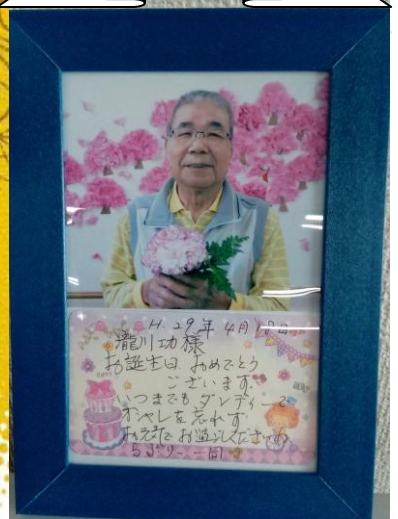 H.29年4月18日
瀧川功様
お誕生日 おめでとう
ございます。
いつまでも ダンディーで
オシャレを忘れず
お元気で お過ごしくださいね
一同